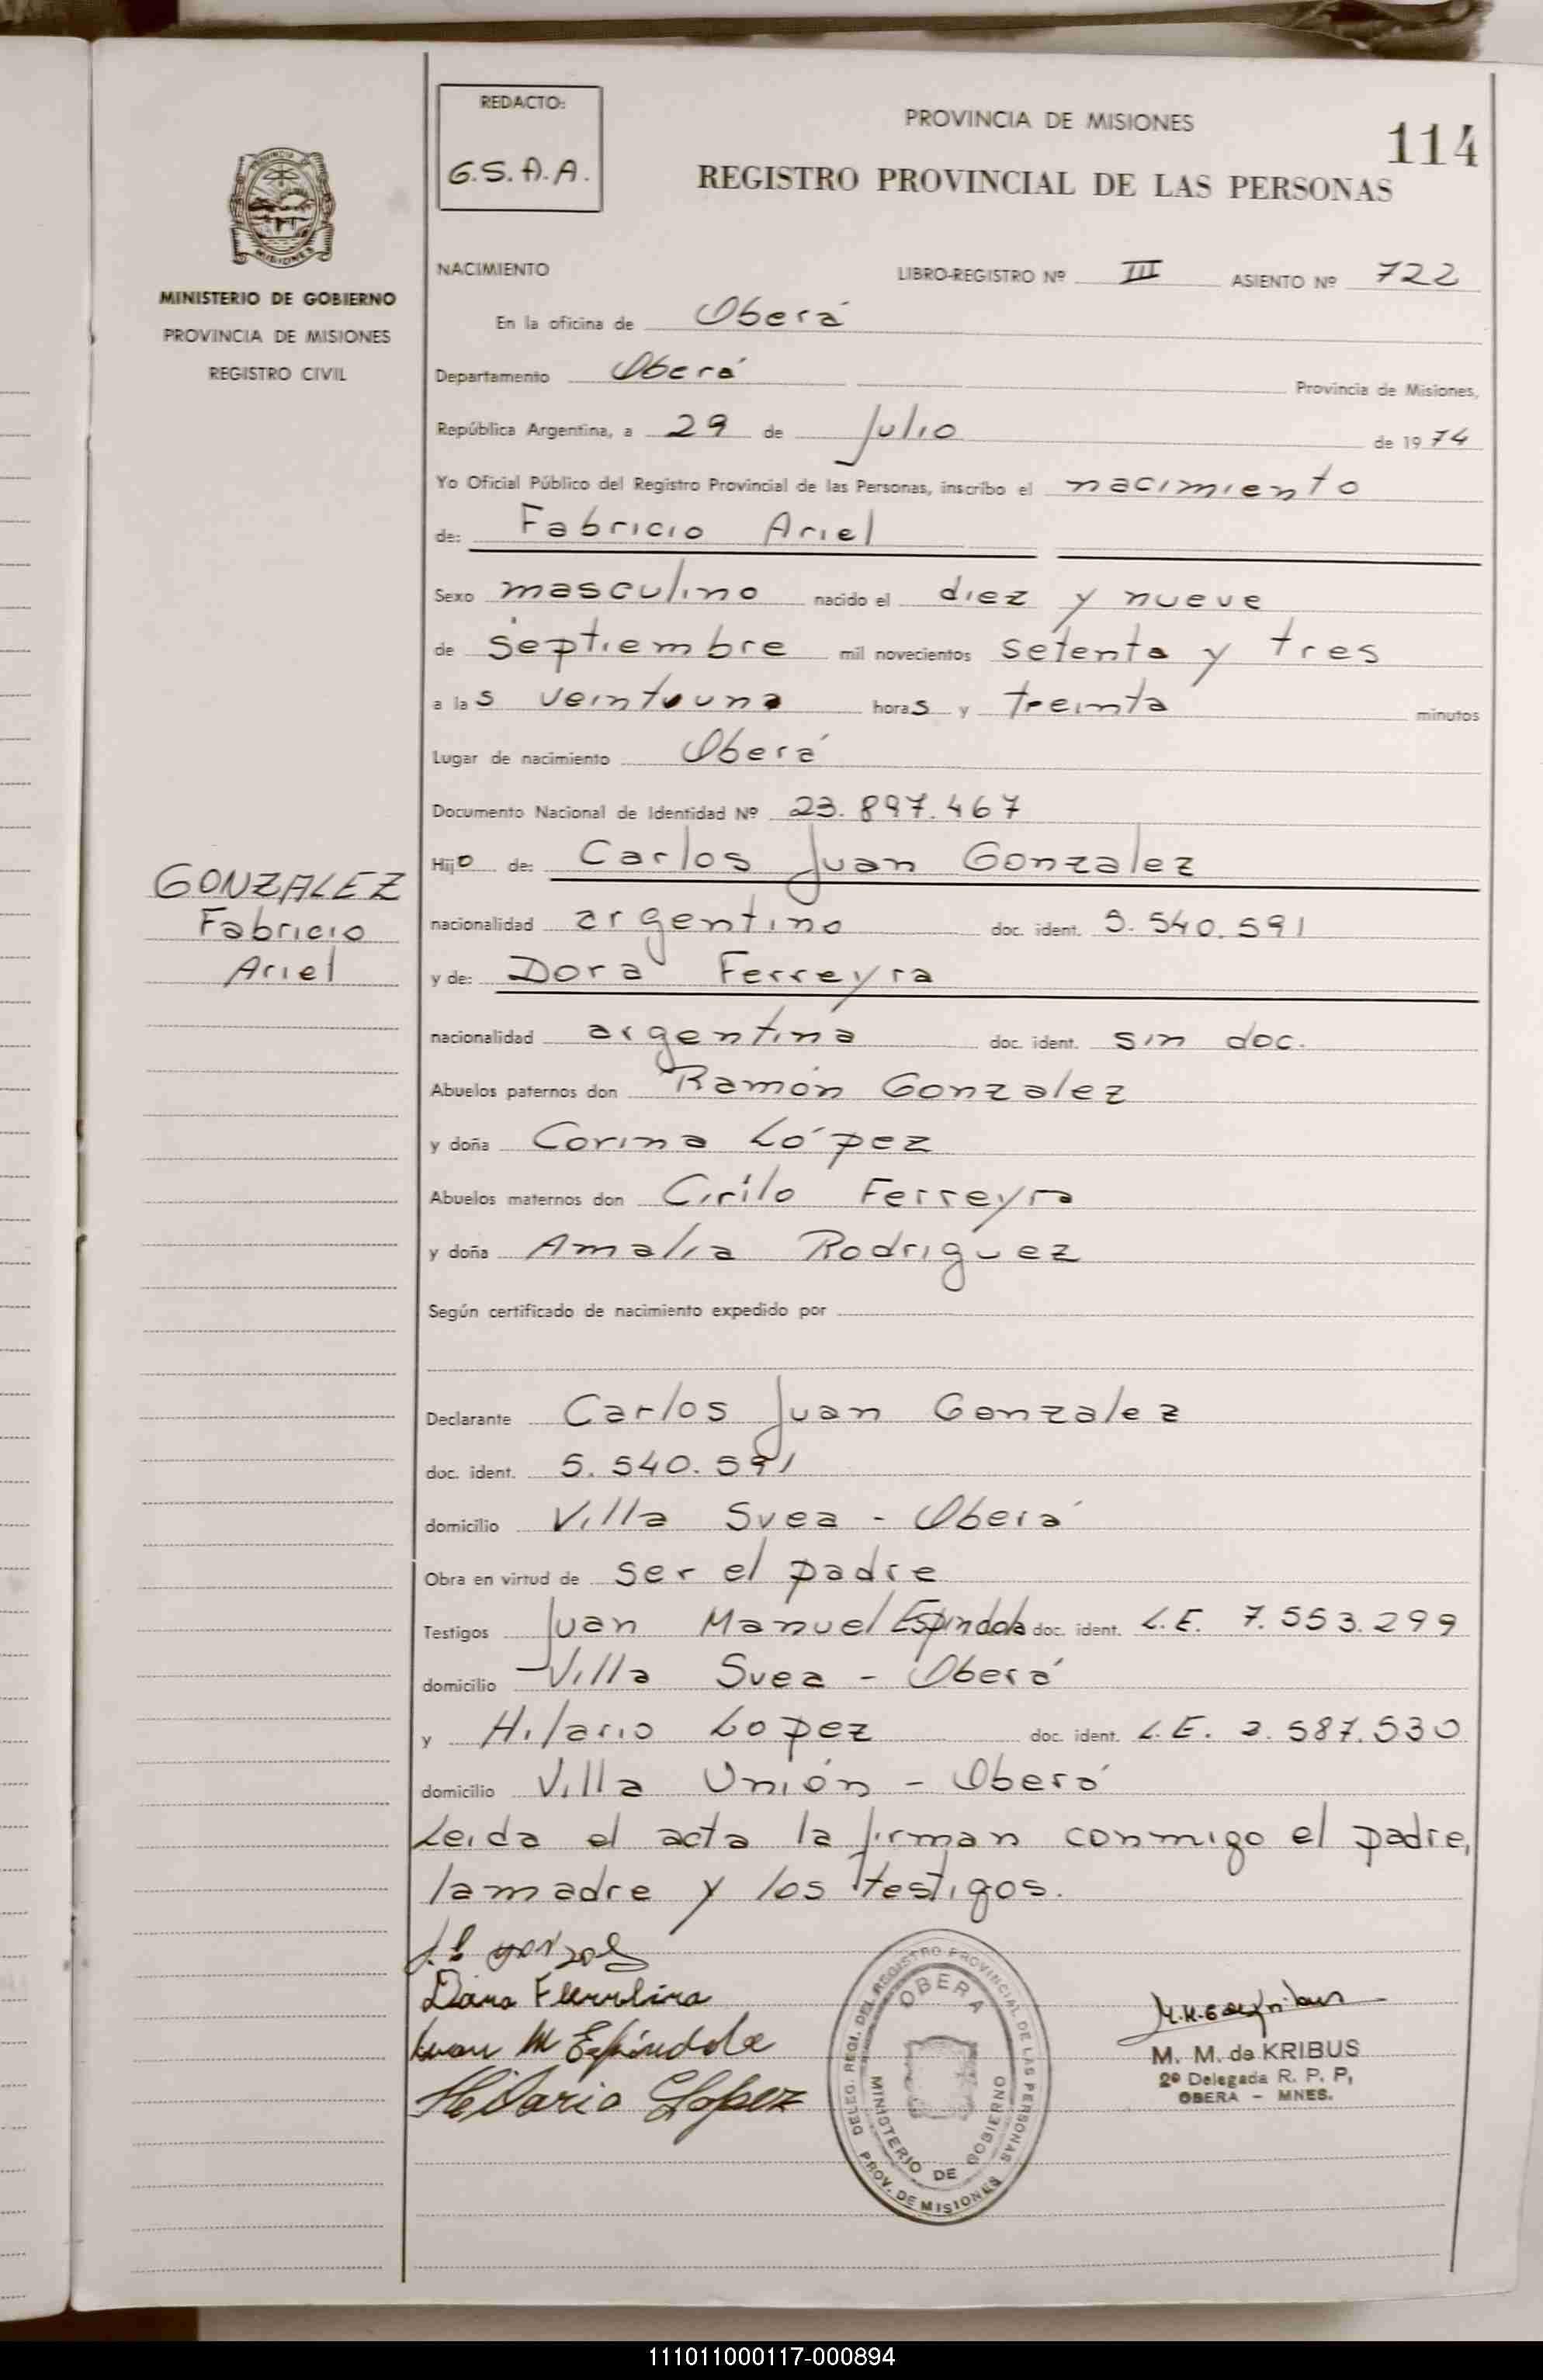 REDACTO:
G.S.A.A.
PROVINCIA DE MISIONES
114
REGISTRO PROVINCIAL DE LAS PERSONAS
MISIONES
MINISTERIO DE GOBIERNO
PROVINCIA DE MISIONES
REGISTRO CIVIL
NACIMIENTO LIBRO-REGISTRO Nº III ASIENTO Nº 722
En la oficina de Oberá
Departamento Oberá Provincia de Misiones,
República Argentina, a 29 de Julio de 1974
Yo Oficial Público del Registro Provincial de las Personas, inscribo el nacimiento
de: Fabricio Ariel
Sexo masculino nacido el diez y nueve
de septiembre mil novecientos setenta y tres
a las veintouna horas y treinta minutos
Lugar de nacimiento Oberá
Documento Nacional de Identidad Nº 23.897.467
Hijo de: Carlos Juan Gonzalez
GONZALEZ
Fabricio
Ariel
nacionalidad argentino doc. ident. 5.540.591
y de: Dora Ferreyra
nacionalidad argentina doc. ident. sin doc.
Abuelos paternos don Ramón Gonzalez
y doña Corina López
Abuelos maternos don Cirilo Ferreyra
y doña Amalia Rodriguez
Según certificado de nacimiento expedido por
Declarante Carlos Juan Gonzalez
doc. ident. 5.540.591
domicilio Villa Svea - Oberá
Obra en virtud de ser el padre
Testigos Juan Manuel Espindola doc. ident. L.E. 7.553.299
domicilio Villa Svea - Oberá
y Hilario Lopez doc. ident. L.E. 2.587.530
domicilio Villa Unión - Oberá
Leida el acta la firman conmigo el padre,
la madre y los testigos.
Juan M Espíndola
Hilario Lopez
DELEG. REGI. DEL REGISTRO PROVINCIAL DE LAS PERSONAS
OBERA
MINISTERIO DE GOBIERNO
PROV. DE MISIONES
M. M. de KRIBUS
2º Delegada R. P. P,
OBERA - MNES.
111011000117-000894